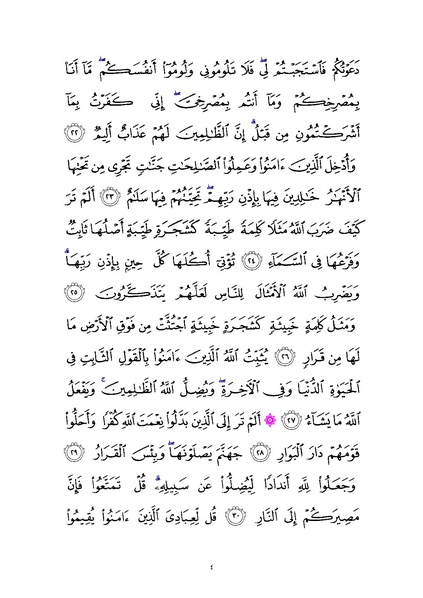 دَعَوْتُكُمْ فَٱسْتَجَبْتُمْ لِىۖ فَلَا تَلُومُونِى وَلُومُوٓا۟ أَنفُسَكُمۖ مَّآ أَنَا۠
بِمُصْرِخِكُمْ وَمَآ أَنتُم بِمُصْرِخِىَّۖ إِنِّى كَفَرْتُ بِمَآ
أَشْرَكْتُمُونِ مِن قَبْلُۗ إِنَّ ٱلظَّـٰلِمِينَ لَهُمْ عَذَابٌ أَلِيمٌ ٢٢
وَأُدْخِلَ ٱلَّذِينَ ءَامَنُوا۟ وَعَمِلُوا۟ ٱلصَّـٰلِحَـٰتِ جَنَّـٰتٍ تَجْرِى مِن تَحْتِهَا
ٱلْأَنْهَـٰرُ خَـٰلِدِينَ فِيهَا بِإِذْنِ رَبِّهِمْۖ تَحِيَّتُهُمْ فِيهَا سَلَـٰمٌ ٢٣ أَلَمْ تَرَ
كَيْفَ ضَرَبَ ٱللَّهُ مَثَلًا كَلِمَةً طَيِّبَةً كَشَجَرَةٍ طَيِّبَةٍ أَصْلُهَا ثَابِتٌ
وَفَرْعُهَا فِى ٱلسَّمَآءِ ٢٤ تُؤْتِىٓ أُكُلَهَا كُلَّ حِينٍۭ بِإِذْنِ رَبِّهَاۗ
وَيَضْرِبُ ٱللَّهُ ٱلْأَمْثَالَ لِلنَّاسِ لَعَلَّهُمْ يَتَذَكَّرُونَ ٢٥
وَمَثَلُ كَلِمَةٍ خَبِيثَةٍ كَشَجَرَةٍ خَبِيثَةٍ ٱجْتُثَّتْ مِن فَوْقِ ٱلْأَرْضِ مَا
لَهَا مِن قَرَارٍ ٢٦ يُثَبِّتُ ٱللَّهُ ٱلَّذِينَ ءَامَنُوا۟ بِٱلْقَوْلِ ٱلثَّابِتِ فِى
ٱلْحَيَوٰةِ ٱلدُّنْيَا وَفِى ٱلْأَخِرَةِۖ وَيُضِلُّ ٱللَّهُ ٱلظَّـٰلِمِينَۚ وَيَفْعَلُ
ٱللَّهُ مَا يَشَآءُ ٢٧ ۞ أَلَمْ تَرَ إِلَى ٱلَّذِينَ بَدَّلُوا۟ نِعْمَتَ ٱللَّهِ كُفْرًا وَأَحَلُّوا۟
قَوْمَهُمْ دَارَ ٱلْبَوَارِ ٢٨ جَهَنَّمَ يَصْلَوْنَهَاۖ وَبِئْسَ ٱلْقَرَارُ ٢٩
وَجَعَلُوا۟ لِلَّهِ أَندَادًا لِّيُضِلُّوا۟ عَن سَبِيلِهِۦۗ قُلْ تَمَتَّعُوا۟ فَإِنَّ
مَصِيرَكُمْ إِلَى ٱلنَّارِ ٣٠ قُل لِّعِبَادِىَ ٱلَّذِينَ ءَامَنُوا۟ يُقِيمُوا۟
٤